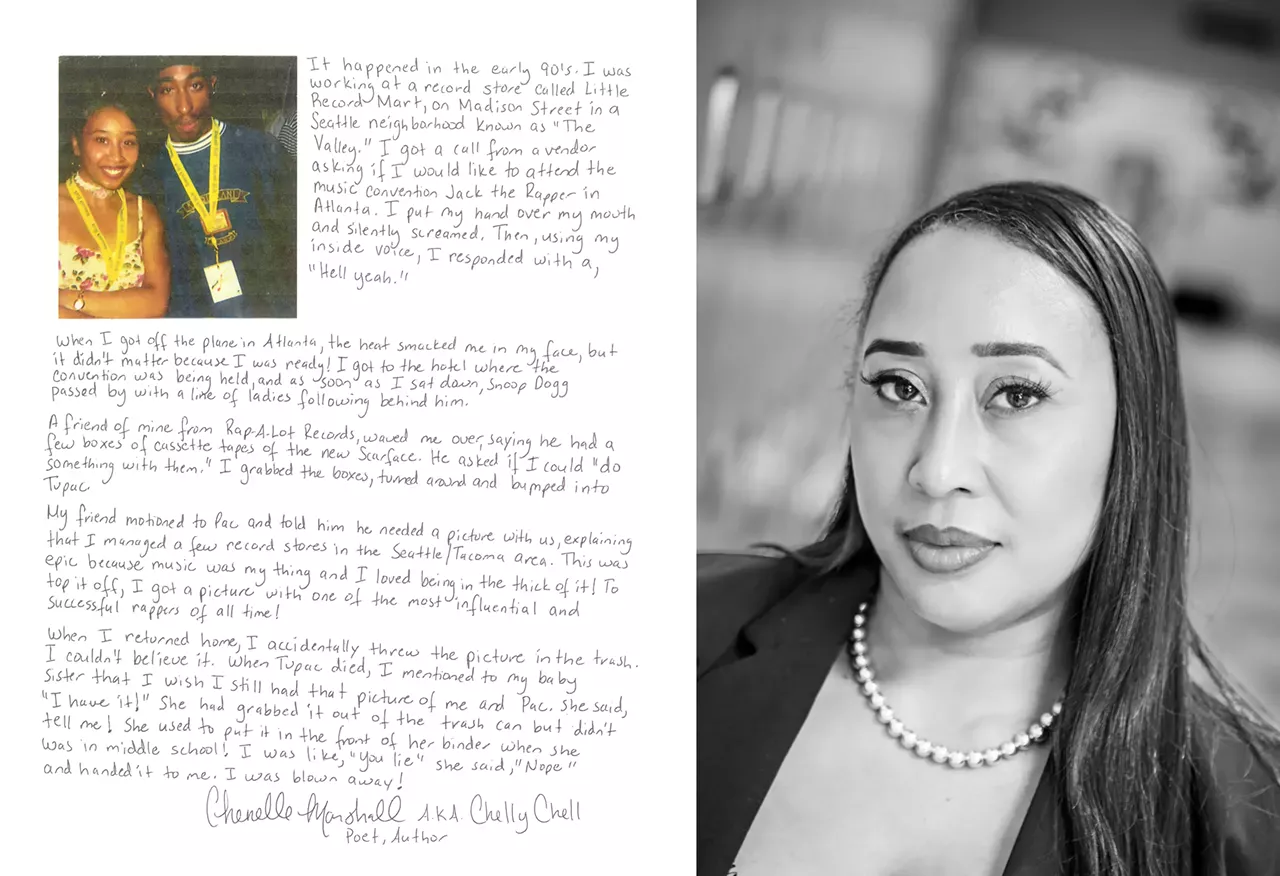 It happened in the early 90's. I was
working at a record store called Little
Record Mart, on Madison Street in a
Seattle neighborhood known as "The
Valley." I got a call from a vendor
asking if I would like to attend the
music convention Jack the Rapper in
Atlanta. I put my hand over my mouth
and silently screamed. Then, using my
inside voice, I responded with a,
"Hell yeah."
When I got off the plane in Atlanta, the heat smacked me in my face, but
it didn't matter because I was ready! I got to the hotel where the
convention was being held, and as soon as I sat down, Snoop Dogg
passed by with a line of ladies following behind him.
A friend of mine from Rap-A-Lot Records, waved me over, saying he had a
few boxes of cassette tapes of the new Scarface. He asked if I could "do
something with them." I grabbed the boxes, turned around and bumped into
Tupac
My friend motioned to Pac and told him he needed a picture with us, explaining
that I managed a few record stores in the Seattle/Tacoma area. This was
epic because music was my thing and I loved being in the thick of it! To
top it off, I got a picture with one of the most influential and
successful rappers of all time!
When I returned home, I accidentally threw the picture in the trash.
I couldn't believe it. When Tupac died, I mentioned to my baby
sister that I wish I still had that picture of me and Pac. She said,
"I have it!" She had grabbed it out of the trash can but didn't
tell me! She used to put it in the front of her binder when she
was in middle school! I was like, "You lie" she said, "Nope"
and handed it to me. I was blown away!
Chenelle Marshall A.K.A. Chelly Chell
Poet, Author